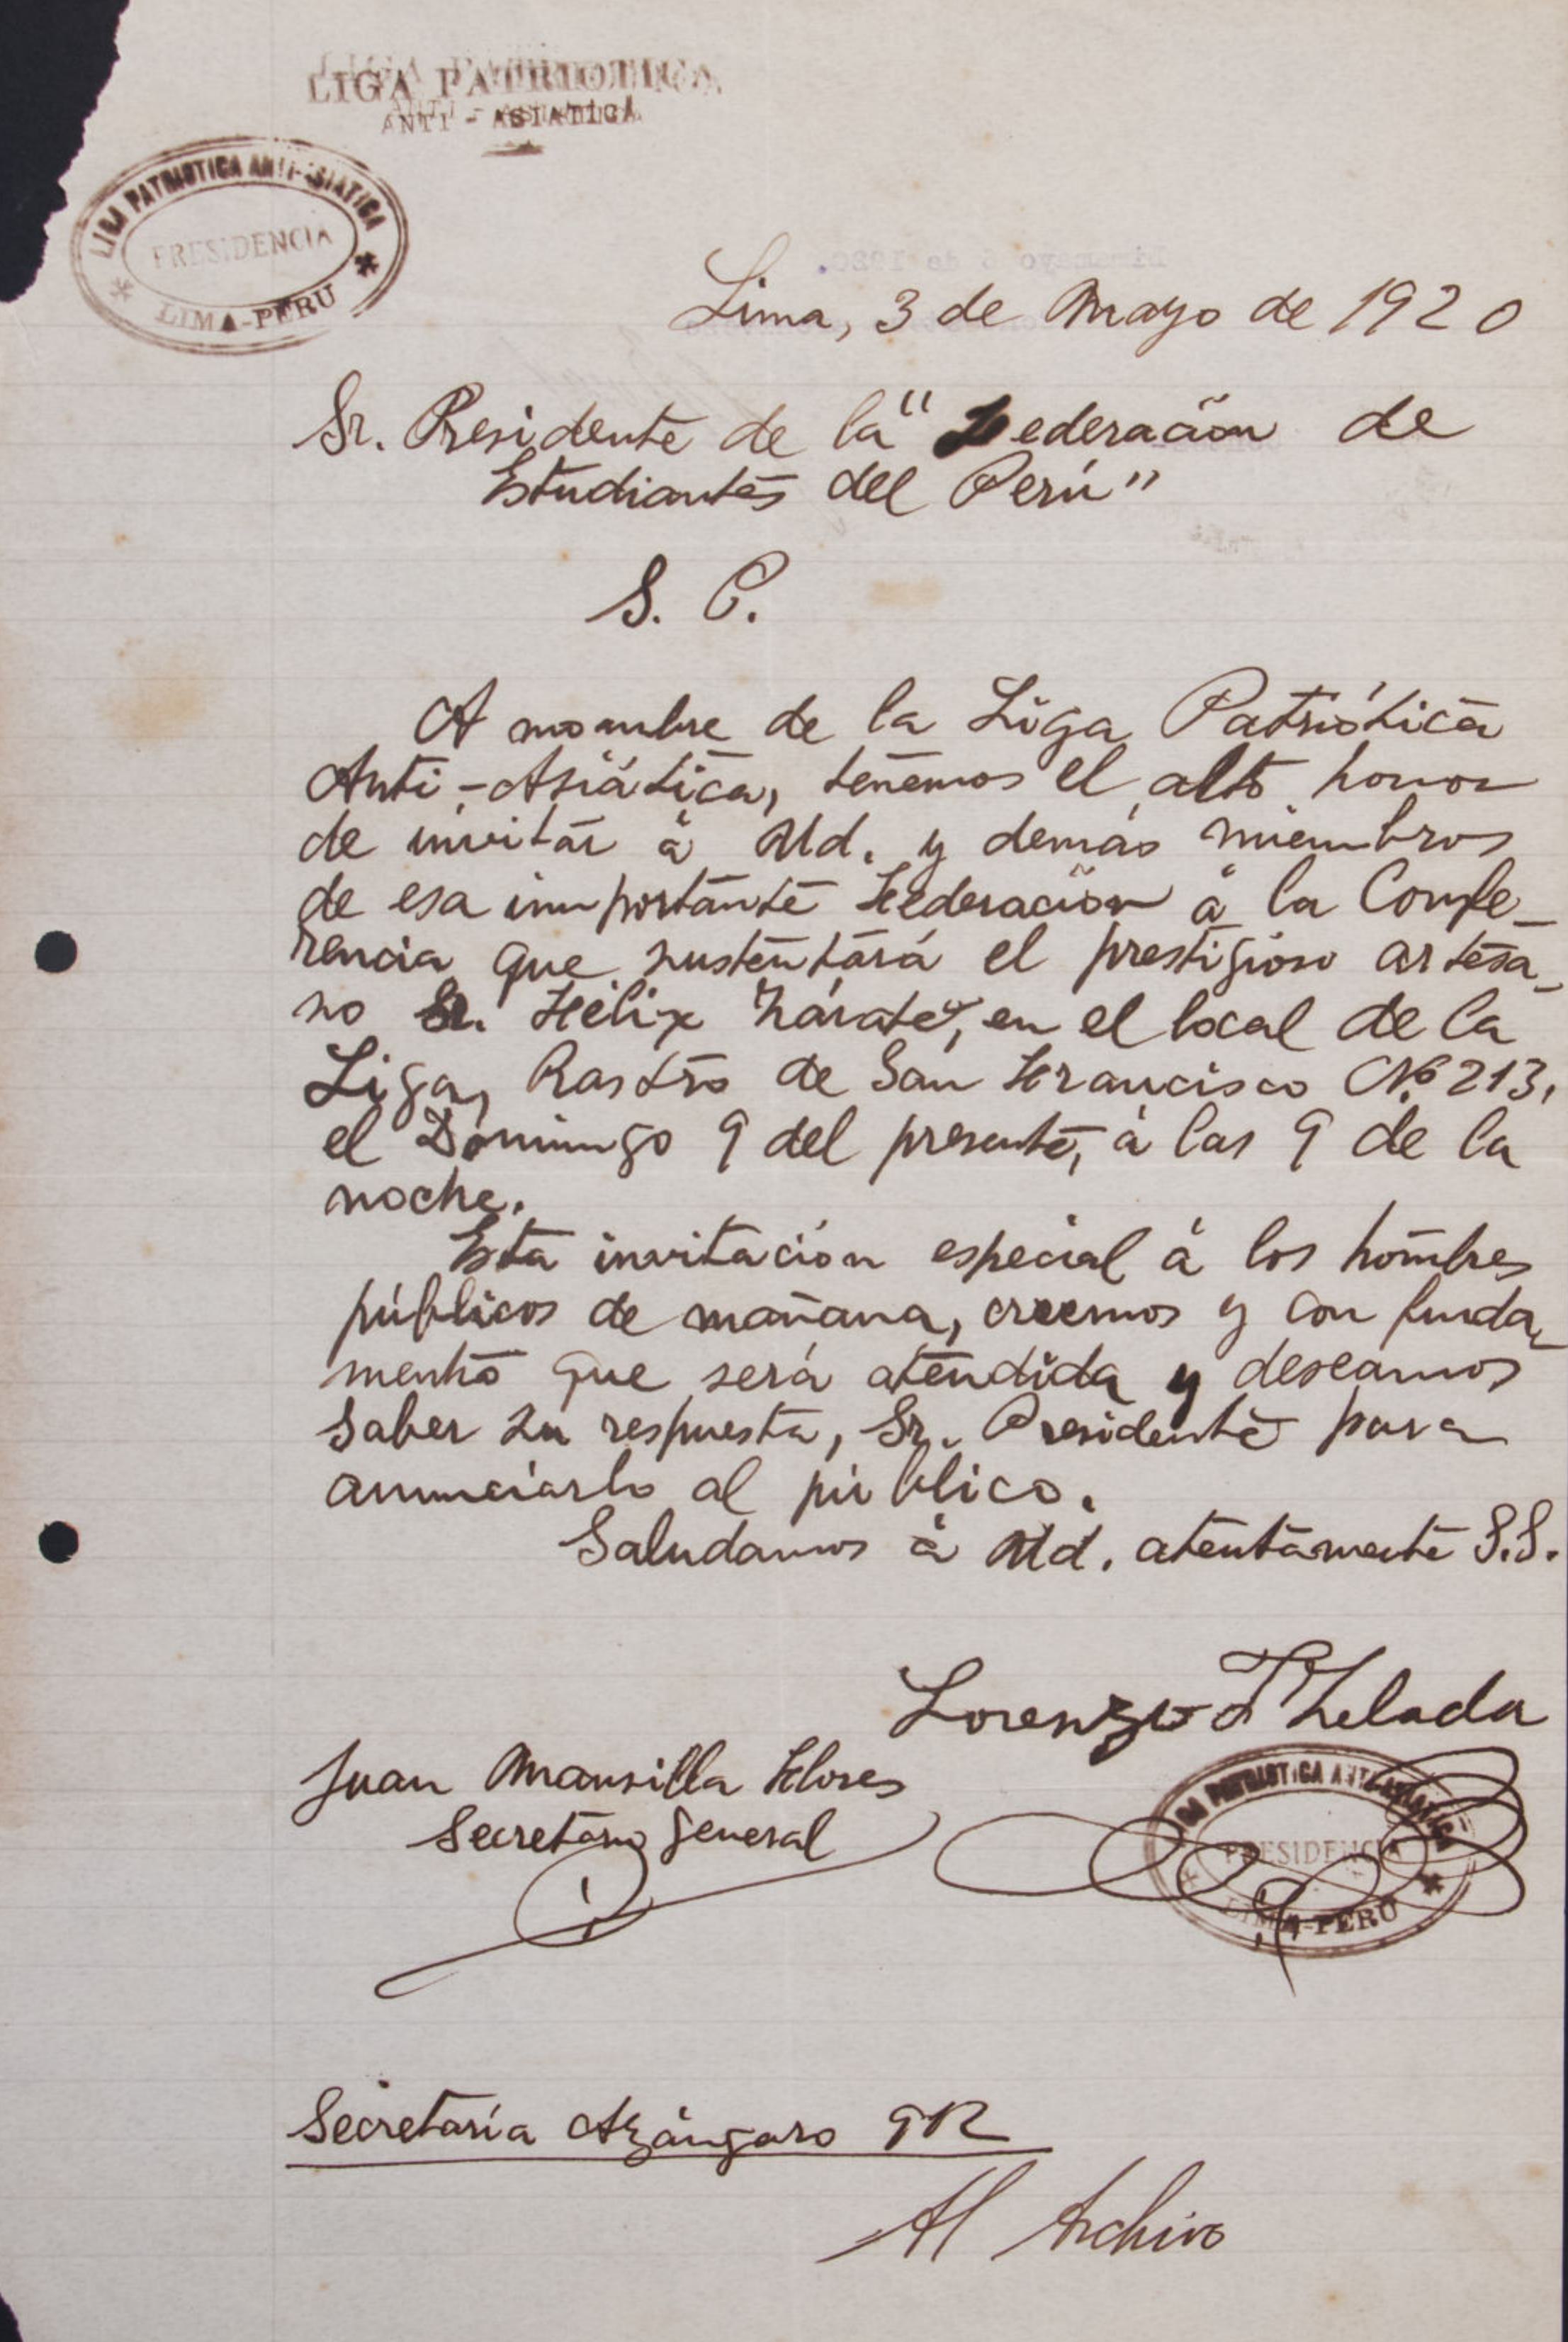 LIGA PATRIOTICA
ANTI - ASIATICA
LIGA PATRIOTICA ANTI-ASIATICA
PRESIDENCIA
LIMA-PERU
Lima, 3 de Mayo de 1920
Sr. Presidente de la "Federación de
Estudiantes del Perú"
S. P.
A nombre de la Liga Patriótica
Anti-Asiática, tenemos el alto honor
de invitar á Ud. y demás miembros
de esa importante Federación á la Confe_
rencia que sustentará el prestigioso artesa_
no Sr. Félix Zárate, en el local de la
Liga, Rastro de San Francisco Nº 213,
el Domingo 9 del presente, á las 9 de la
noche.
Esta invitación especial á los hombres
públicos de mañana, creemos y con funda_
mento que será atendida y deseamos
saber su respuesta, Sr. Presidente para
anunciarlo al público.
Saludamos á Ud. atentamente S.S.
Lorenzo Zelada
Juan Mansilla Flores
Secretario General
LIGA PATRIOTICA ANTI-ASIATICA
PRESIDENCIA
LIMA-PERU
Secretaría Azángaro
Al Archivo